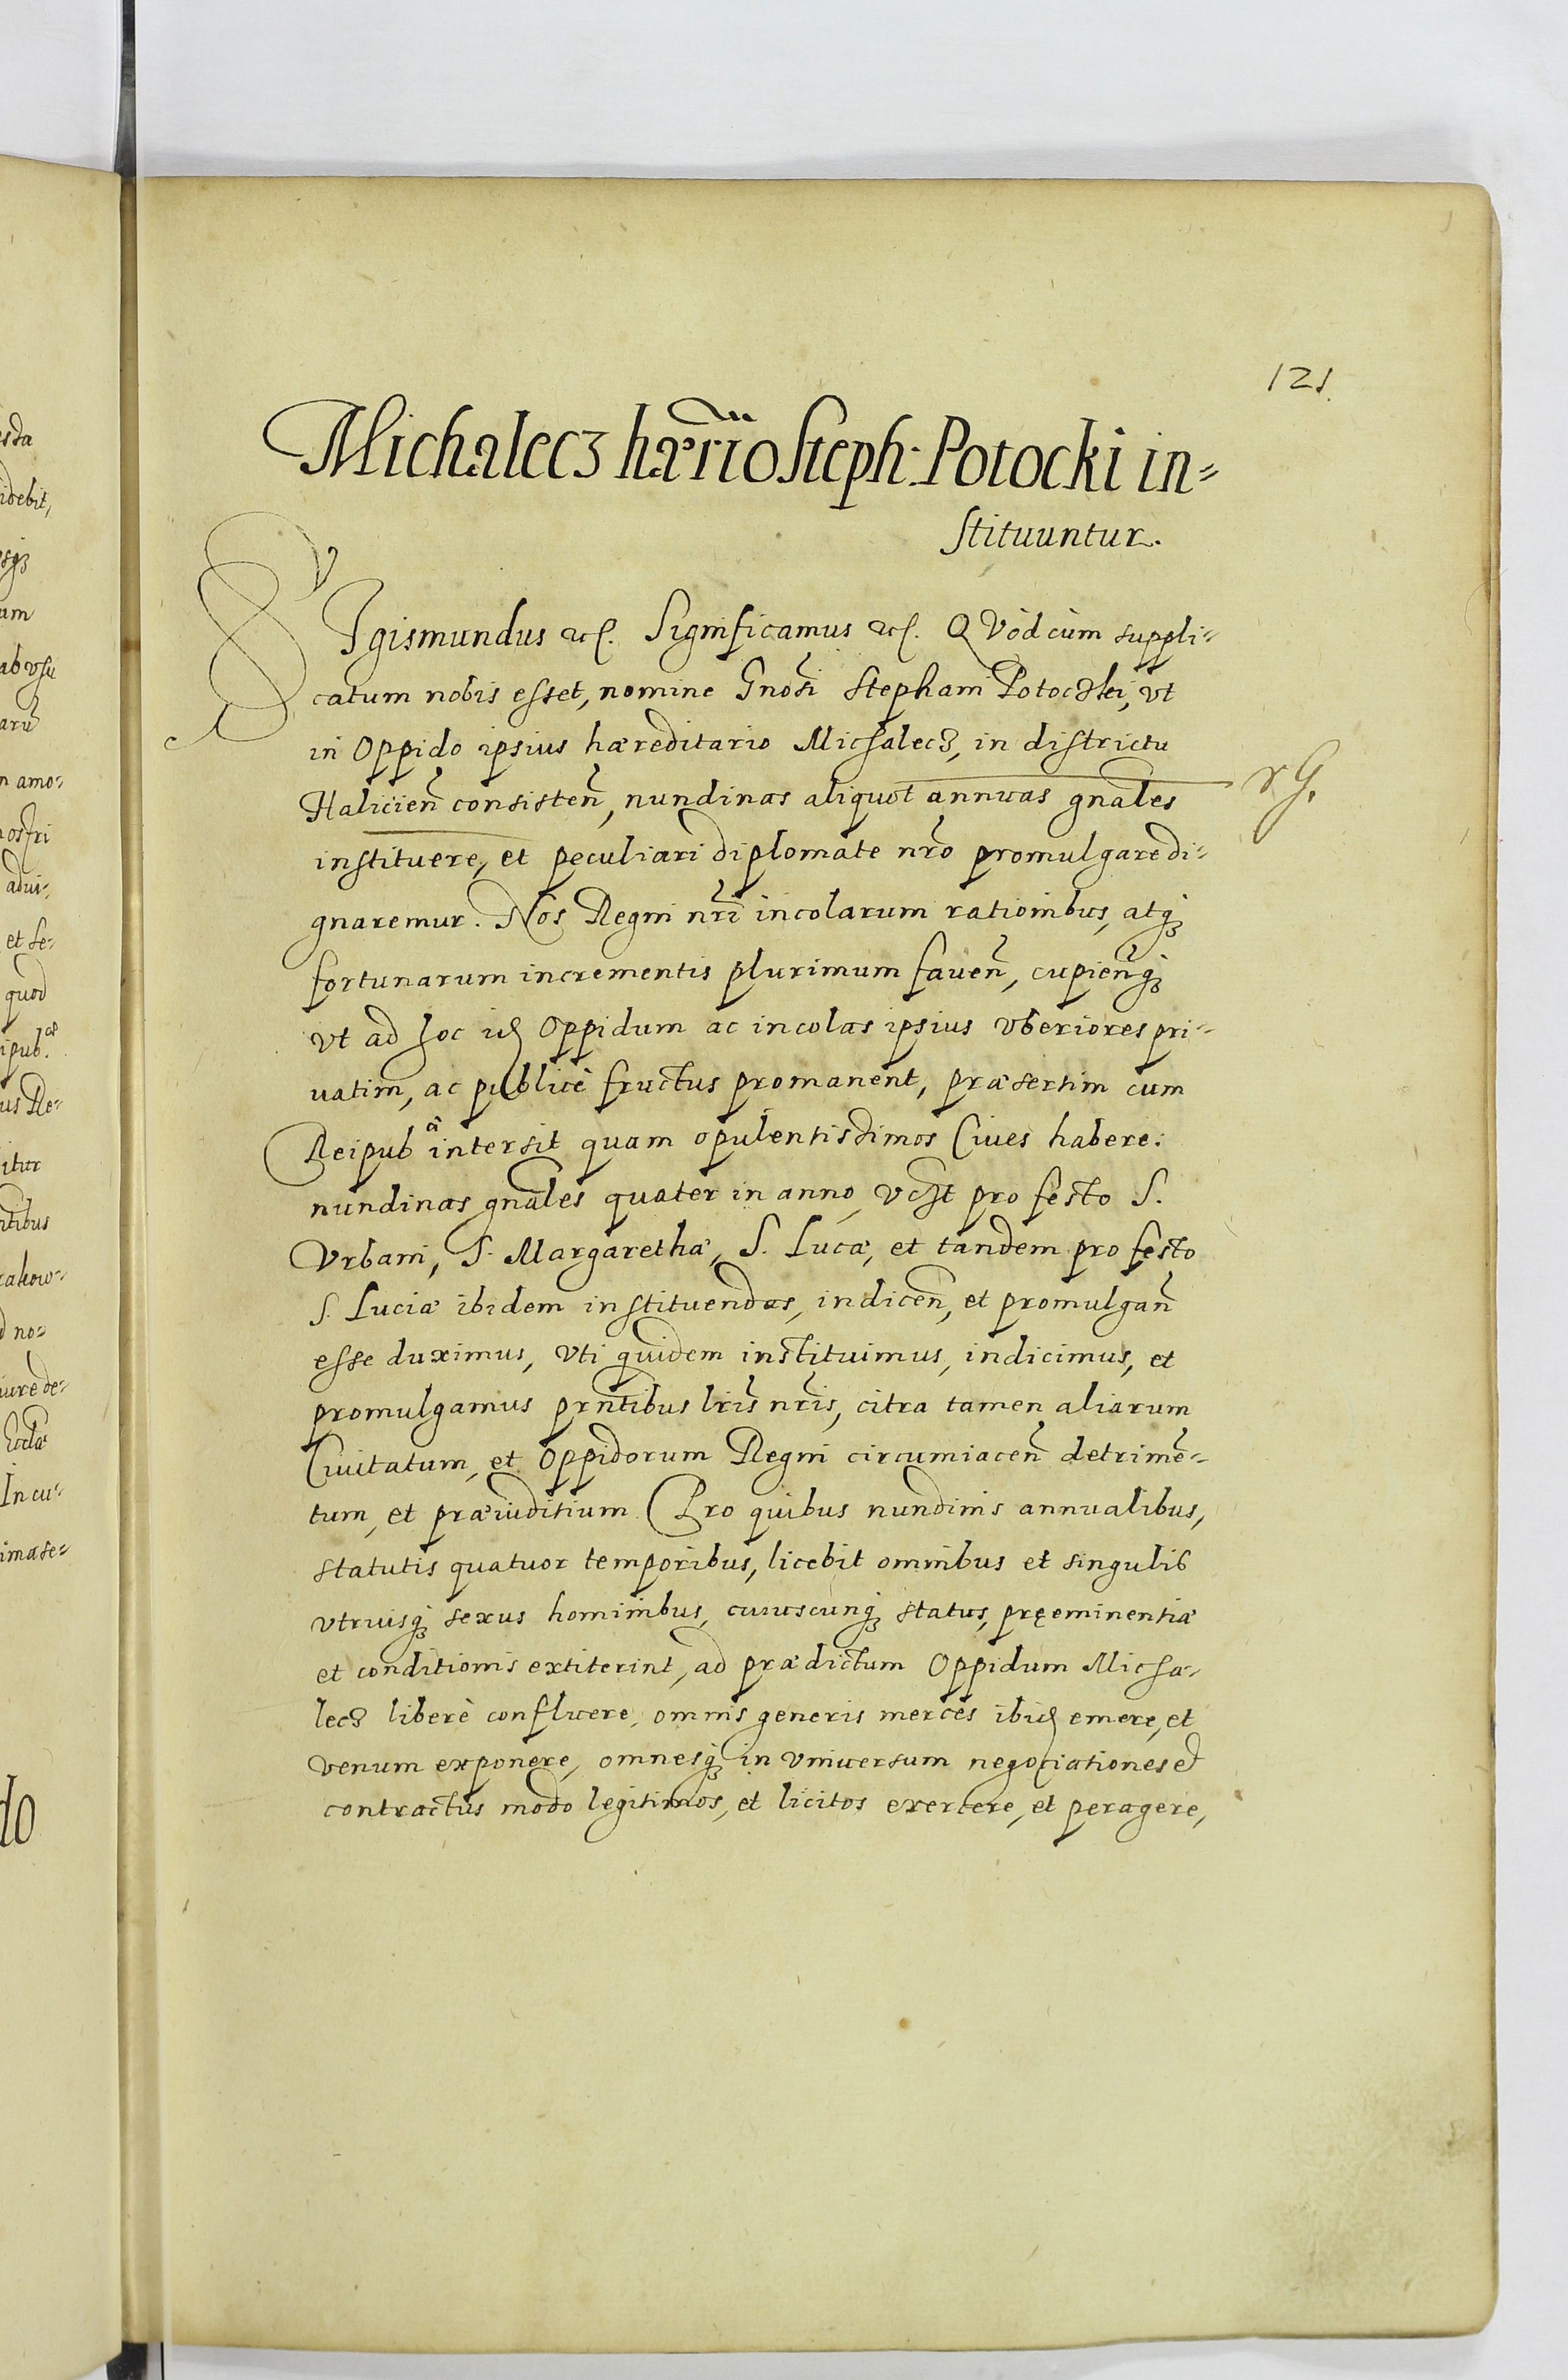 121.
Michalecz hær̃rio Steph: Potocki in⸗
stituuntur.
SIgismundus etc. Significamus etc. QVòd cùm suppli⸗
catum nobis esset, nomine Gnosi Stephani Potoczki, vt
in Oppido ipsius hæreditario Michalecz, in districtu
Halicien̄ consisten̄, nundinas aliquot annuas gnales
instituere, et peculiari diplomate nrõ promulgare di⸗
gnaremur. Nos Regni nrĩ incolarum rationibus, atqꝫ
fortunarum incrementis plurimum fauen̄, cupien̄qꝫ
vt ad hoc id Oppidum ac incolas ipsius vberiores pri⸗
uatim, ac publicè fructus promanent, præsertim cum
Reipubᶜᵃ intersit quam opulentissimos Ciues habere:
nundinas gnales quater in anno, vcꝫt pro festo S.
Vrbani, S. Margarethæ, S. Lucæ, et tandem pro festo
S. Luciæ ibidem instituendas, indicen̄, et promulgan̄
esse duximus, vti quidem instituimus, indicimus, et
promulgamus prñtibus lrĩs nrĩs, citra tamen aliarum
Ciuitatum, et Oppidorum Regni circumiacen̄ detrimē⸗
tum, et præiuditium. Pro quibus nundinis annualibus,
statutis quatuor temporibus, licebit omnibus et singulis
vtriusqꝫ sexus hominibus, cuiuscunqꝫ status, pręeminentiæ
et conditionis extiterint, ad prædictum Oppidum Micha⸗
lecz liberè confluere, omnis generis merces ibid emere, et
venum exponere, omnesqꝫ in vniuersum negociationes et
contractus modo legitimos, et licitos exercere, et peragere,